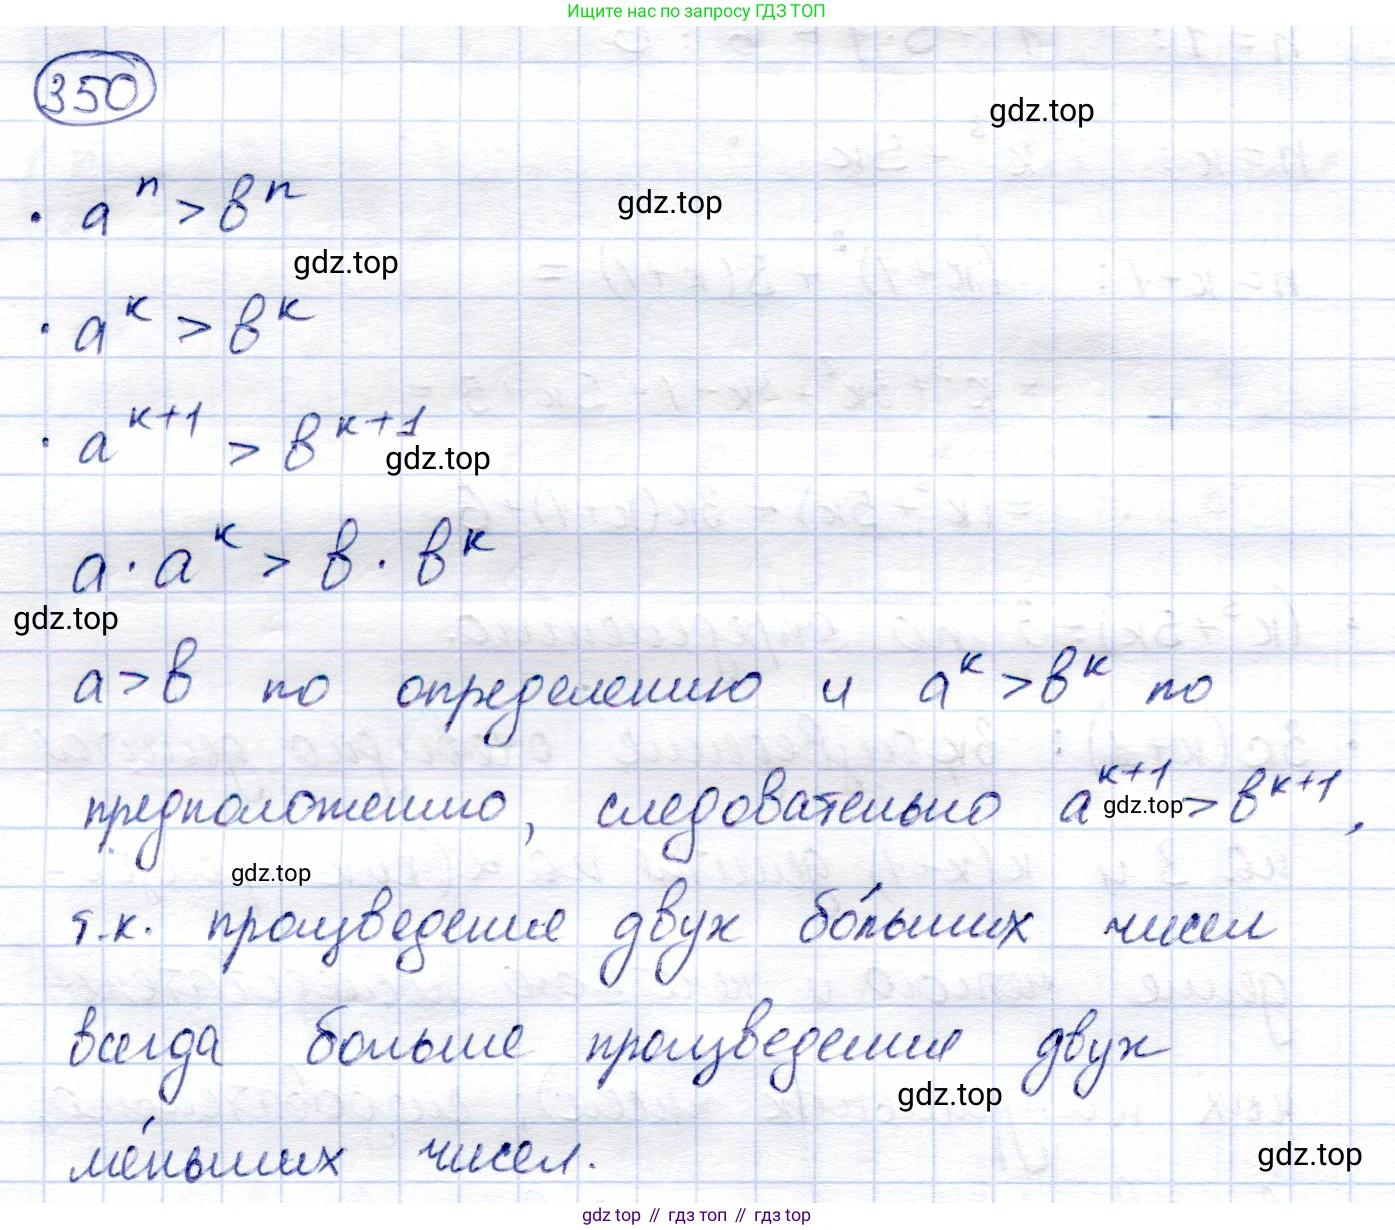 Ищите нас по запросу ГДЗ ТОП
350
gdz.top
· a^n > b^n
gdz.top
gdz.top
· a^к > b^к
· a^{к+1} > b^{к+1}
gdz.top
a · a^к > b · b^к
gdz.top
a > b по определению и a^к > b^к по
предположению, следовательно a^{к+1} > b^{к+1},
gdz.top
gdz.top
т.к. произведение двух бо́льших чисел
всегда больше произведения двух
gdz.top
ме́ньших чисел.
gdz.top
gdz top // гдз топ // гдз top